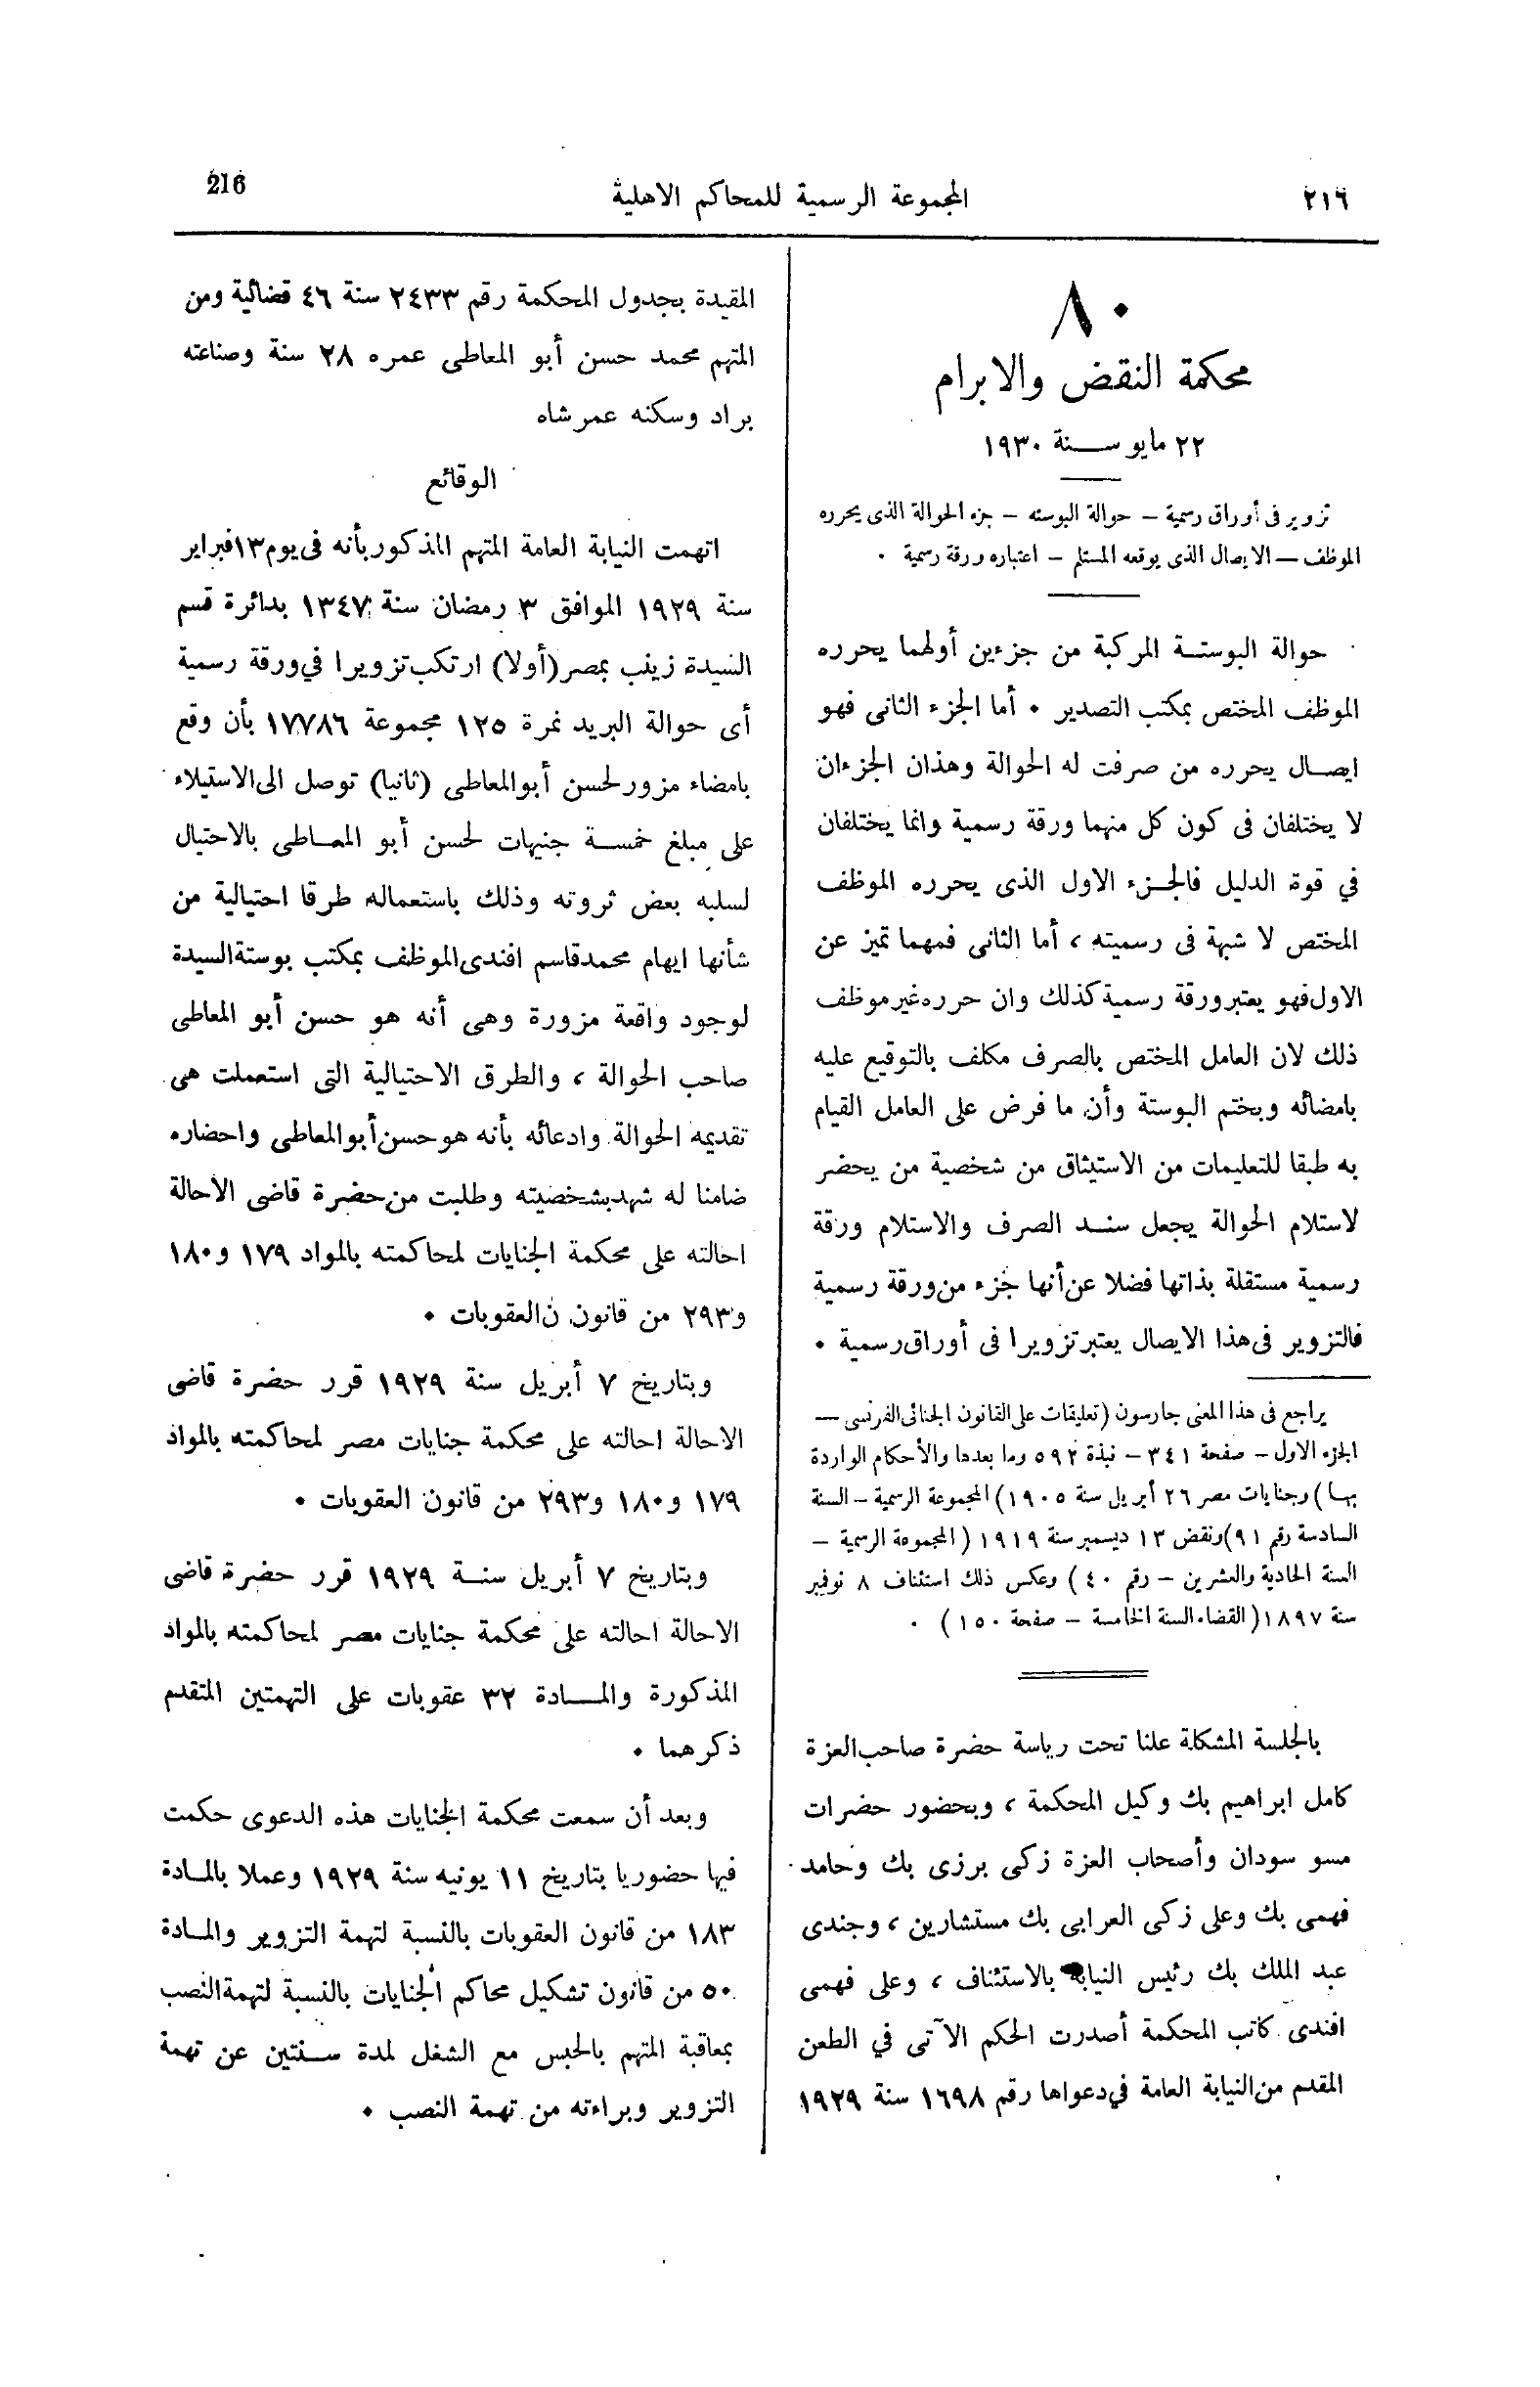 ٢١٦
المجموعة الرسمية للمحاكم الاهلية
216
٨٠
محكمة النقض والابرام
٢٢ مايو سنة ١٩٣٠
تزوير فى أوراق رسمية – حوالة البوسته – جزء الحوالة الذى يحرره
الموظف – الايصال الذى يوقعه المستلم – اعتباره ورقة رسمية .
حوالة البوستة المركبة من جزءين أولهما يحرره
الموظف المختص بمكتب التصدير . أما الجزء الثانى فهو
ايصال يحرره من صرفت له الحوالة وهذان الجزءان
لا يختلفان فى كون كل منهما ورقة رسمية وانما يختلفان
في قوة الدليل فالجزء الاول الذى يحرره الموظف
المختص لا شبهة فى رسميته ، أما الثانى فمهما تميز عن
الاول فهو يعتبر ورقة رسمية كذلك وان حرره غير موظف
ذلك لان العامل المختص بالصرف مكلف بالتوقيع عليه
بامضائه وبختم البوستة وأن ما فرض على العامل القيام
به طبقا للتعليمات من الاستيثاق من شخصية من يحضر
لاستلام الحوالة يجعل سند الصرف والاستلام ورقة
رسمية مستقلة بذاتها فضلا عن أنها جزء من ورقة رسمية
فالتزوير فى هذا الايصال يعتبر تزويرا فى أوراق رسمية .
يراجع فى هذا المعنى جارسون (تعليقات على القانون الجنائى الفرنسى –
الجزء الاول – صفحة ٣٤١ – نبذة ٥٩٢ وما بعدها والأحكام الواردة
بها) وجنايات مصر ٢٦ أبريل سنة ١٩٠٥) المجموعة الرسمية – السنة
السادسة رقم ٩١) ونقض ١٣ ديسمبر سنة ١٩١٩ (المجموعة الرسمية –
السنة الحادية والعشرين – رقم ٤٠) وعكس ذلك استئناف ٨ نوفمبر
سنة ١٨٩٧ (القضاء السنة الخامسة – صفحة ١٥٠) .
بالجلسة المشكلة علنا تحت رياسة حضرة صاحب العزة
كامل ابراهيم بك وكيل المحكمة ، وبحضور حضرات
مسو سودان وأصحاب العزة زكى برزى بك وحامد
فهمى بك وعلى زكى العرابى بك مستشارين ، وجندى
عبد الملك بك رئيس النيابة بالاستئناف ، وعلى فهمى
افندى كاتب المحكمة أصدرت الحكم الآتى في الطعن
المقدم من النيابة العامة في دعواها رقم ١٦٩٨ سنة ١٩٢٩
المقيدة بجدول المحكمة رقم ٢٤٣٣ سنة ٤٦ قضائية ومن
المتهم محمد حسن أبو المعاطى عمره ٢٨ سنة وصناعته
براد وسكنه عمر شاه
الوقائع
اتهمت النيابة العامة المتهم المذكور بأنه فى يوم ١٣ فبراير
سنة ١٩٢٩ الموافق ٣ رمضان سنة ١٣٤٧ بدائرة قسم
السيدة زينب بمصر (أولا) ارتكب تزويرا في ورقة رسمية
أى حوالة البريد نمرة ١٢٥ مجموعة ١٧٧٨٦ بأن وقع
بامضاء مزور لحسن أبو المعاطى (ثانيا) توصل الى الاستيلاء
على مبلغ خمسة جنيهات لحسن أبو المعاطى بالاحتيال
لسلبه بعض ثروته وذلك باستعماله طرقا احتيالية من
شأنها ايهام محمد قاسم افندى الموظف بمكتب بوستة السيدة
لوجود واقعة مزورة وهى أنه هو حسن أبو المعاطى
صاحب الحوالة ، والطرق الاحتيالية التى استعملت هى
تقديمه الحوالة وادعائه بأنه هو حسن أبو المعاطى واحضاره
ضامنا له شهد بشخصيته وطلبت من حضرة قاضى الاحالة
احالته على محكمة الجنايات لمحاكمته بالمواد ١٧٩ و١٨٠
و٢٩٣ من قانون ن العقوبات .
وبتاريخ ٧ أبريل سنة ١٩٢٩ قرر حضرة قاضى
الاحالة احالته على محكمة جنايات مصر لمحاكمته بالمواد
١٧٩ و١٨٠ و٢٩٣ من قانون العقوبات .
وبتاريخ ٧ أبريل سنة ١٩٢٩ قرر حضرة قاضى
الاحالة احالته على محكمة جنايات مصر لمحاكمته بالمواد
المذكورة والمادة ٣٢ عقوبات على التهمتين المتقدم
ذكرهما .
وبعد أن سمعت محكمة الجنايات هذه الدعوى حكمت
فيها حضوريا بتاريخ ١١ يونيه سنة ١٩٢٩ وعملا بالمادة
١٨٣ من قانون العقوبات بالنسبة لتهمة التزوير والمادة
٥٠ من قانون تشكيل محاكم الجنايات بالنسبة لتهمة النصب
بمعاقبة المتهم بالحبس مع الشغل لمدة سنتين عن تهمة
التزوير وبراءته من تهمة النصب .